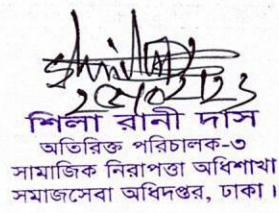 শিলা রানী দাস
অতিরিক্ত পরিচালক-৩
সামাজিক নিরাপত্তা অধিশাখা
সমাজসেবা অধিদপ্তর, ঢাকা।।